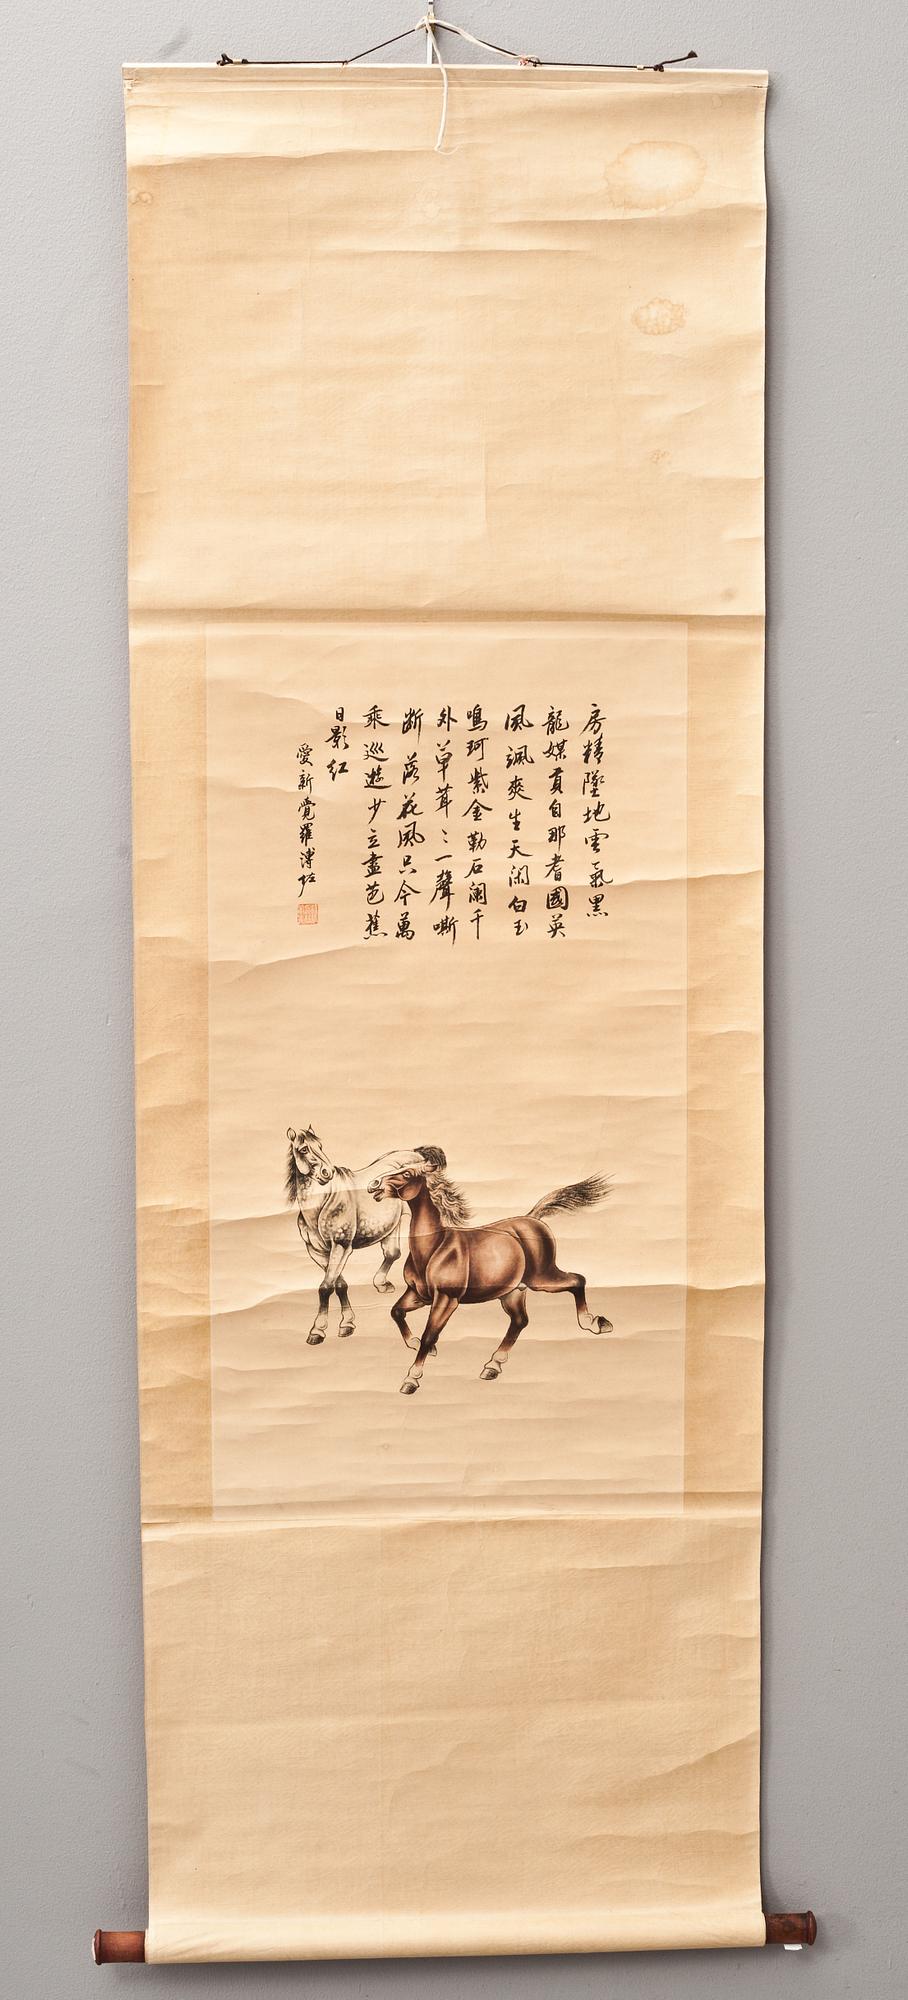 房精墜地雲氣黑
龍媒貢自那耆國英
風颯爽生天閑白玉
鳴珂紫金勒石闌干
外草茸〻一聲嘶
断落花風只今萬
乘巡遊少立盡芭蕉
日影紅
愛新覺羅溥佐